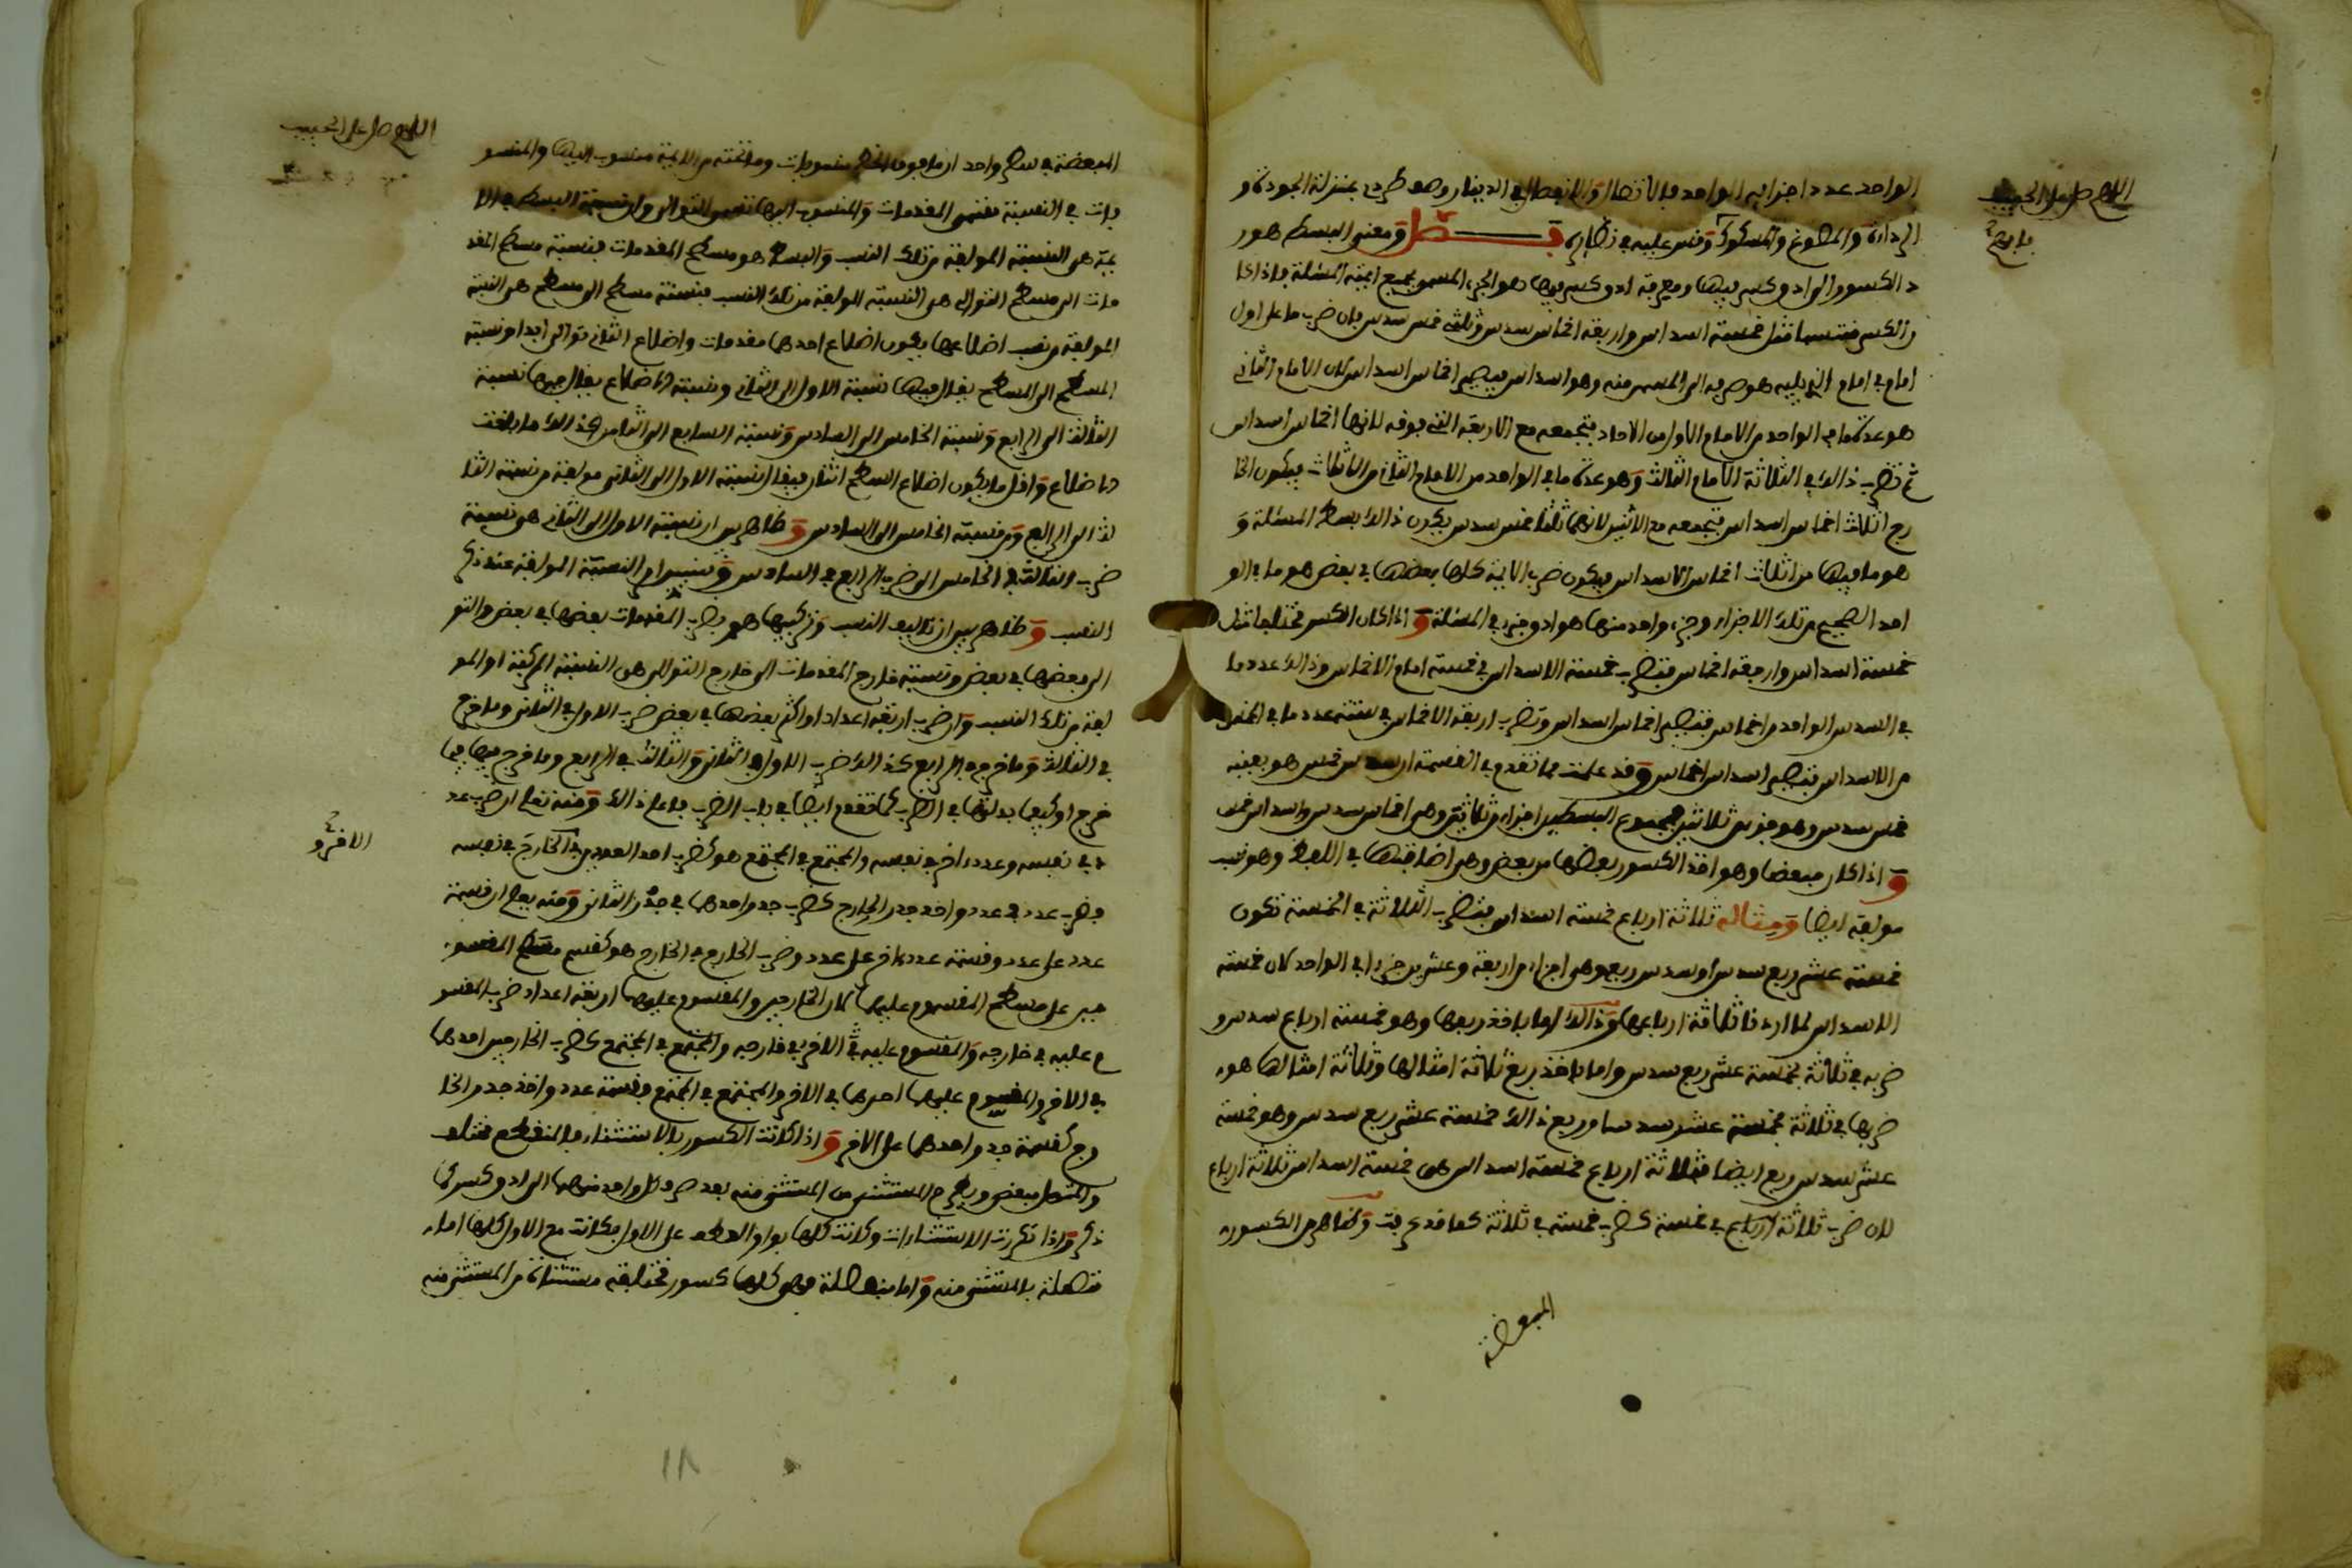 الواحد عدد اجزايه الواحد بالاتصال والانفصال في الدينار وهو طردي بمنزلة الجودة و
الرداءة والمطبوع والمسكوك وقس عليه في نظايره فصل ومعنى البسط هو ر
د الكسور الى ادق كسر فيها ومعرفة ادق كسر فيها هو الجزء المسمى بجميع ايمة المسئلة فاذا كا
ن الكسر منتسبا مثل خمسة اسداس واربعة اخماس سدس وثلثي خمس سدس فان ضرب ما على اول
امام في امام الذي يليه هو صرفه الى المسمى منه وهو اسداس فيصير اخماس اسداس لان الامام الثاني
هو عدة ما في الواحد من الامام الاول من الاحاد فتجمعه مع الاربعة التي فوقه لانها اخماس اسداس
ثم تضرب ذالك في الثلاثة الامام الثالث وهو عدة ما في الواحد من الامام الثاني من الاثلاث فيكون الخا
رج اثلاث اخماس اسداس فتجمعه مع الاثنين لانهما ثلثا خمس سدس يكون ذالك بسط المسئلة و
هو ما فيها من اثلاث اخماس الاسداس فيكون ضرب الايمة كلها بعضها في بعض هو ما في الو
احد الصحيح من تلك الاجزاء وجزء واحد منها هو ادق جزء في المسئلة واذا كان الكسر مختلفا مثل
خمسة اسداس واربعة اخماس فتضرب خمسة الاسداس في خمسة امام الاخماس وذالك عدد ما
في السدس الواحد من اخماس فتصير اخماس اسداس وتضرب اربعة الاخماس في ستة عدد ما في الخمس
من الاسداس فتصير اسداس اخماس وقد علمت مما تقدم في القسمة ان سدس خمس هو بعينه
خمس سدس وهو جزء من ثلاثين فمجموع البسطين اجزاء من ثلاثين وهي اخماس سدس واسداس خمس
واذا كان مبعضا وهو اخذ الكسور بعضها من بعض وهي اضافتها في اللفظ وهو نسب
مولفة ايضا ومثاله ثلاثة ارباع خمسة اسداس فتضرب الثلاثة في الخمسة تكون
خمسة عشر ربع سدس او سدس ربع وهي اجزاء من اربعة وعشرين جزءا في الواحد لان خمسة
الاسداس لما اردنا ثلاثة ارباعها وذالك اما باخذ ربعها وهو خمسة ارباع سدس و
ضربه في ثلاثة بخمسة عشر ربع سدس واما باخذ ربع ثلاثة امثالها وثلاثة امثالها هو
ضربها في ثلاثة بخمسة عشر سدسا وربع ذالك خمسة عشر ربع سدس وهو خمسة
عشر سدس ربع ايضا فثلاثة ارباع خمسة اسداس هي خمسة اسداس ثلاثة ارباع
لان ضرب ثلاثة ارباع في خمسة كضرب خمسة في ثلاثة كما قد عرفت وظاهر من الكسور
المبعضة
اللهم صل على الحبيب
المبعضة في سطح واحد ان ما فوق الخط منسوبات وما تحته من الايمة منسوب اليها والمنسو
بات في النسبة تسمى المقدمات والمنسوب اليها تسمى التوالي وان نسبة البسط من الا
يمة هي النسبة المولفة من تلك النسب والبسط هو مسطح المقدمات فنسبة مسطح المقد
مات الى مسطح التوالي هي النسبة المولفة من تلك النسب فنسبة مسطح الى مسطح هي النسبة
المولفة من نسب اضلاعها يكون اضلاع احدهما مقدمات واضلاع الثاني توالي ابدا ونسبة
المسطح الى المسطح يقال فيها نسبة الاول الى الثاني ونسبة الاضلاع يقال فيها نسبة
الثالث الى الرابع ونسبة الخامس الى السادس ونسبة السابع الى الثامن كذالك ما بلغت
الاضلاع واقل ما يكون اضلاع السطح اثنان فيقال نسبة الاول الى الثاني مولفة من نسبة الثا
لث الى الرابع ومن نسبة الخامس الى السادس وظاهر بين ان نسبة الاول الى الثاني هو نسبة
ضرب الثالث في الخامس الى ضرب الرابع في السادس وتبين ان النسبة المولفة عند ذكر
النسب وظاهر بين ان تاليف النسب وتركيبها هو بضرب المقدمات بعضها في بعض والتو
الي بعضها في بعض ونسبة خارج المقدمات الى خارج التوالي هي النسبة المركبة او المو
لفة من تلك النسب وان ضرب اربعة اعداد او اكثر بعضها في بعض ضرب الاول في الثاني وما خرج
في الثالث وما خرج في الرابع كذالك ضرب الاول في الثاني والثالث في الرابع وما خرج فيها فيما
خرج او كيفما بدلتها في الضرب كما تقدم ايضا في باب الضرب فاعلم ذالك ومنه تعلم ان ضرب عد
د في نفسه وعدد اخر في نفسه والمجتمع في المجتمع هو كضرب احد العددين في الخارج في نفسه
فضرب عدد في عدد واخذ جذر الخارج كضرب جذر احدهما في جذر الثاني ومنه يعلم ان قسمة
عدد على عدد وقسمة عدد اخر على عدد وضرب الخارج في الخارج هو كقسم مسطح المقسو
مين على مسطح المقسوم عليهما لان الخارجين والمقسوم عليهما اربعة اعداد ضرب المقسو
م عليه في خارجه والمقسوم عليه الاخر في خارجه والمجتمع في المجتمع كضرب الخارجين احدهما
في الاخر والمقسوم عليهما احدهما في الاخر والمجتمع في المجتمع وقسمة عدد واخذ جذر الخا
رج كقسمة جذر احدهما على الاخر واذا كانت الكسور بالاستثناء فالمنقطع مختلف
والمتصل مبعض ويطرح المستثنى من المستثنى منه بعد صرف كل واحد منهما الى ادق كسر كما
ذكر واذا تكررت الاستثناءات وكانت كلها بواو العطف على الاول فكانت مع الاول كلها اما
متصلة بالمستثنى منه واما منفصلة فهي كلها كسور مختلفة مستثناة من المستثنى منه
اللهم صل على الحبيب
الاخر و
١٨